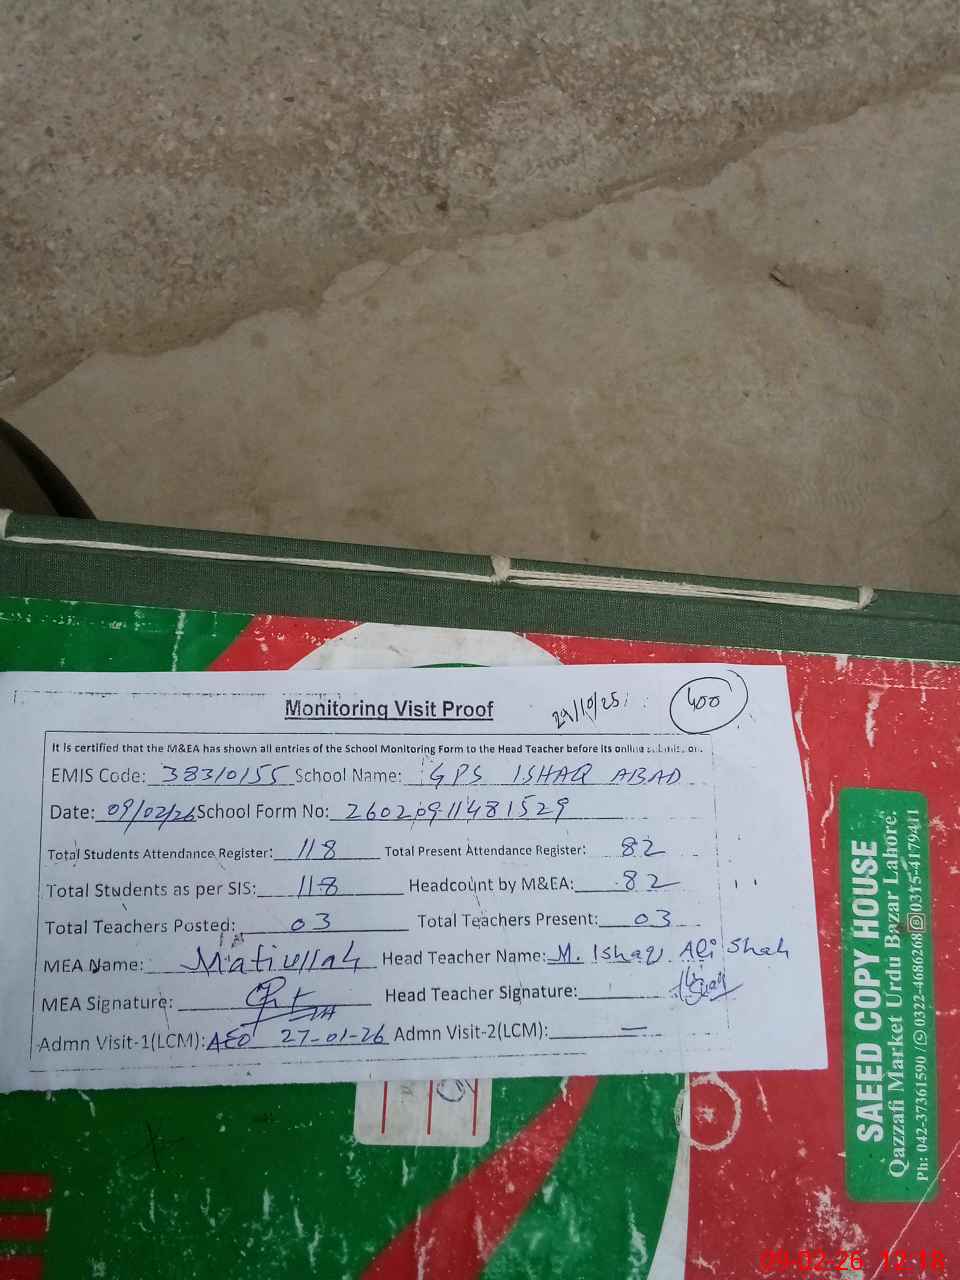 Monitoring Visit Proof
29/10/25
400
It is certified that the M&EA has shown all entries of the School Monitoring Form to the Head Teacher before its online submission.
EMIS Code: 38310155 School Name: GPS ISHAQ ABAD
Date: 09/02/26 School Form No: 26020911481529
Total Students Attendance Register: 118 Total Present Attendance Register: 82
Total Students as per SIS: 118 Headcount by M&EA: 82
Total Teachers Posted: 03 Total Teachers Present: 03
MEA Name: Matiullah Head Teacher Name: M. Ishaq Ali Shah
MEA Signature: Head Teacher Signature:
Admn Visit-1(LCM): AEO 27-01-26 Admn Visit-2(LCM): —
SAEED COPY HOUSE
Qazzafi Market Urdu Bazar Lahore.
Ph: 042-37361590 / 0322-4686268 0315-4179411
09-02-26 12:18